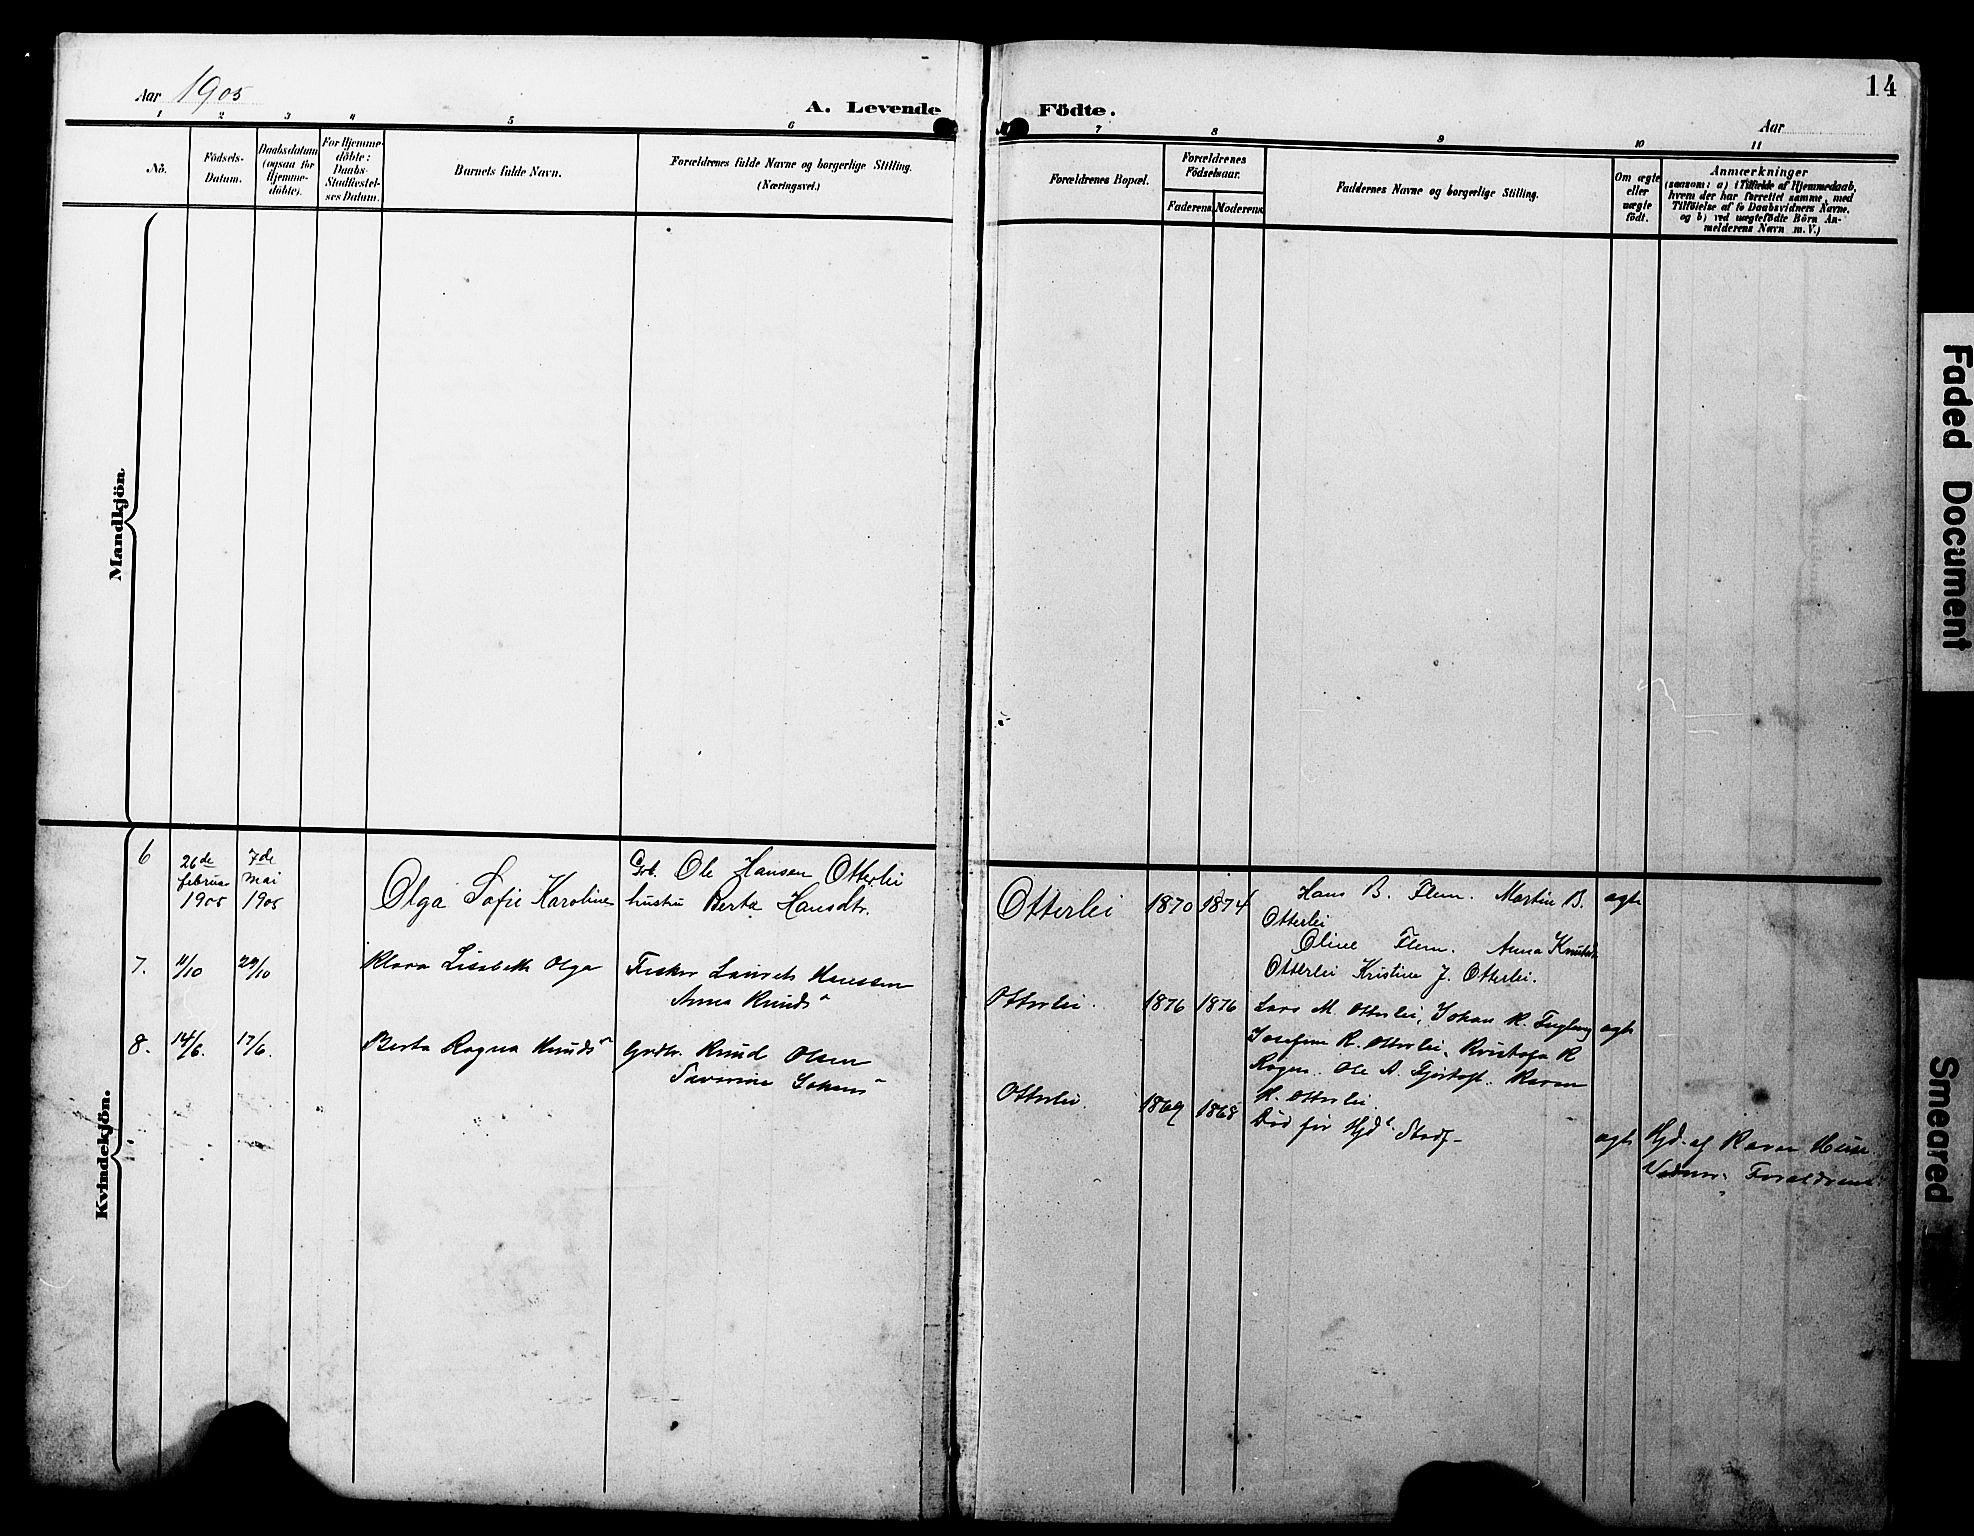 14
Aar 1905
A. Levende
Födte.
Aar
1 2 3 4 5 6 7 8 9 10 11
No.
Födsels-
Datum.
Daabsdatum
(ogsaa for
Hjemme-
döbte).
For Hjemme-
döbte:
Daabs-
Stadfæstel-
ses Datum.
Barnets fulde Navn.
Forældrenes fulde Navne og borgerlige Stilling.
(Næringsvei.)
Forældrenes Bopæl.
Forældrenes
Födselsaar.
Faderens
Moderens
Faddernes Navne og borgerlige Stilling.
Om ægte
eller
uægte
födt.
Anmærkninger
(saasom: a) i Tilfælde af Hjemmedaab,
hvem der har forrettet samme, med
Tilföielse af to Daabsvidners Navne,
og b) ved uægtefödte Börn An-
melderens Navn m. V.)
Mandkjön.
Kvindekjön.
6
26de
februar
1905
7de
mai
1905
Olga Sofie Karoline
Ole Hansen Otterlei
hustru Berta Hansdtr.
Otterlei
1870
1874
Hans B. Flem. Martin B.
Otterlei
Oline Flem. Anna Knutsd.
Otterlei Kristine J. Otterlei.
ægte
7.
11/10
29/10
Klara Lisabeth Olga
Fisker Laurits Hanssen
Anna Knuds"
Otterlei.
1876
1876
Lars M. Otterlei, Johan K.
Josefine R. Otterlei, K
Ole A. Karen
K. Otterlei.
ægte
8.
14/6.
17/6.
Berta Ragna Knuds"
Grdbr. Knud Olsen
Severine Johans"
Otterlei.
1869
1868
Död för Hjd. Stadf.
ægte
Hjd. af Karen Huse.
Vidner: Forældrene
Faded Document
Smeared